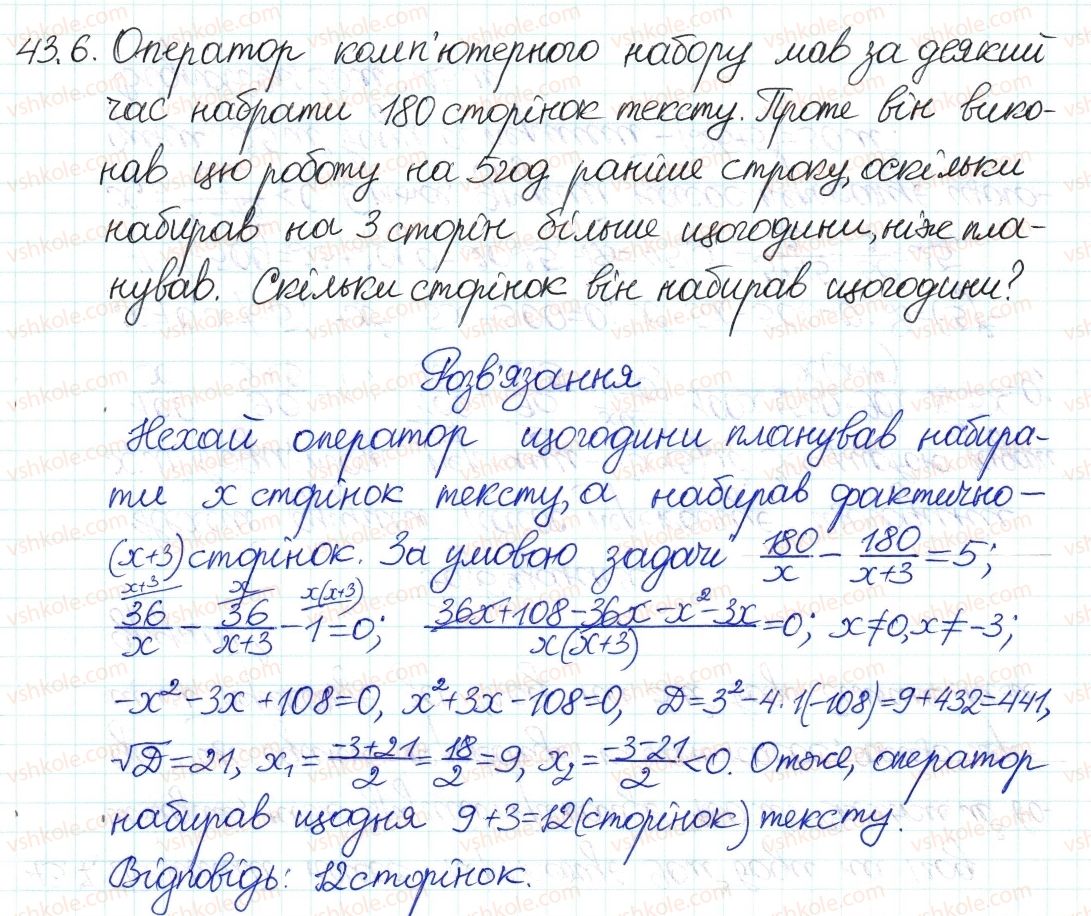 43.6. Оператор комп'ютерного набору мав за деякий
час набрати 180 сторінок тексту. Проте він вико-
нав цю роботу на 5 год раніше строку, оскільки
набирав на 3 сторін більше щогодини, ніж пла-
нував. Скільки сторінок він набирав щогодини?
Розв'язання
Нехай оператор щогодини планував набира-
ти x сторінок тексту, а набирав фактично –
(x+3) сторінок. За умовою задачі 180/x − 180/(x+3) = 5;
36/x (x+3) − 36/(x+3) (x) − 1 (x(x+3)) = 0; (36x+108−36x−x²−3x)/(x(x+3)) = 0; x≠0, x≠−3;
−x²−3x+108=0, x²+3x−108=0, D=3²−4·1(−108)=9+432=441,
√D=21, x₁=(−3+21)/2=18/2=9, x₂=(−3−21)/2<0. Отже, оператор
набирав щодня 9+3=12 (сторінок) тексту.
Відповідь: 12 сторінок.